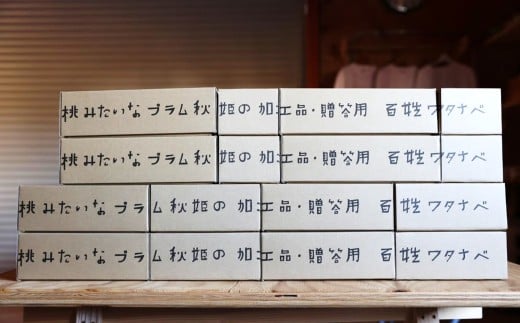 桃みたいなプラム秋姫の加工品・贈答用 百姓ワタナベ
桃みたいなプラム秋姫の加工品・贈答用 百姓ワタナベ
桃みたいなプラム秋姫の加工品・贈答用 百姓ワタナベ
桃みたいなプラム秋姫の加工品・贈答用 百姓ワタナベ